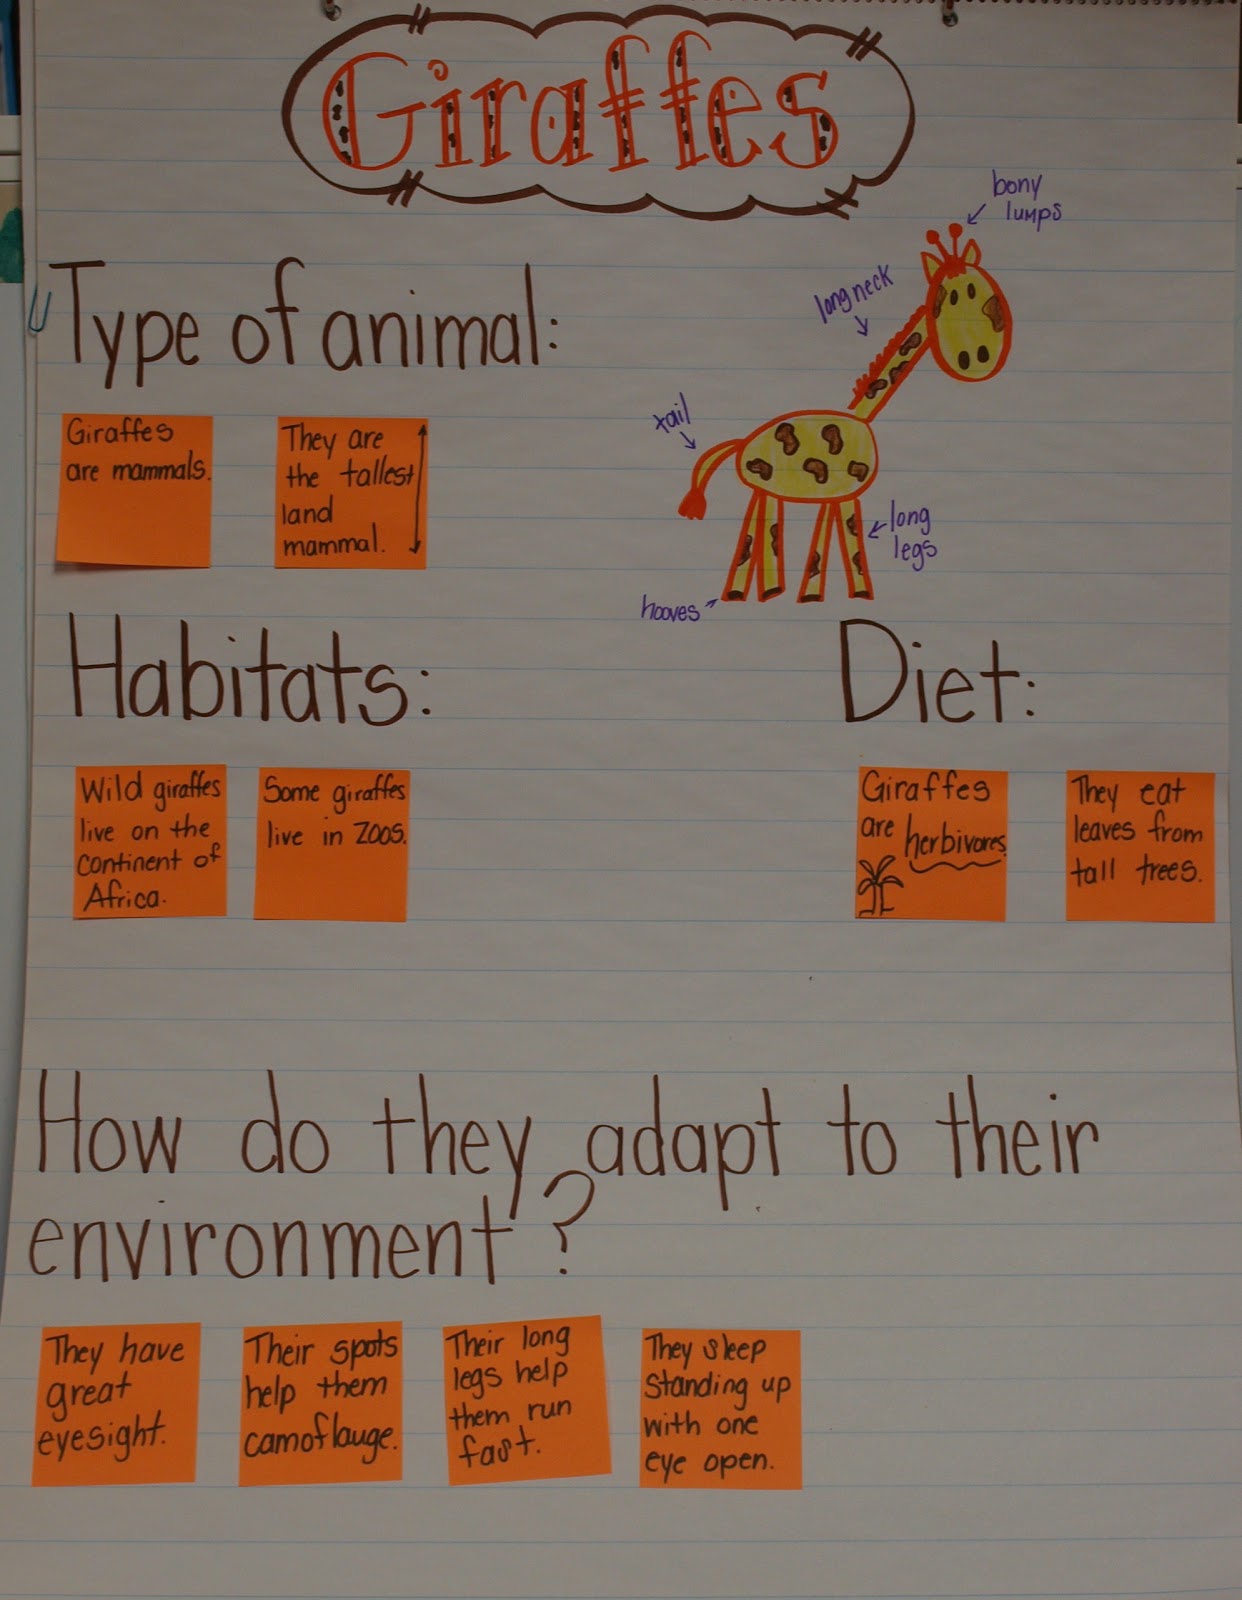 Giraffes
bony
lumps
long neck
tail
long
legs
hooves
Type of animal:
Giraffes
are mammals.
They are
the tallest
land
mammal.
Habitats:
Wild giraffes
live on the
continent of
Africa.
Some giraffes
live in zoos.
Diet:
Giraffes
are herbivores.
They eat
leaves from
tall trees.
How do they adapt to their
environment?
They have
great
eyesight.
Their spots
help them
camoflauge.
Their long
legs help
them run
fast.
They sleep
standing up
with one
eye open.